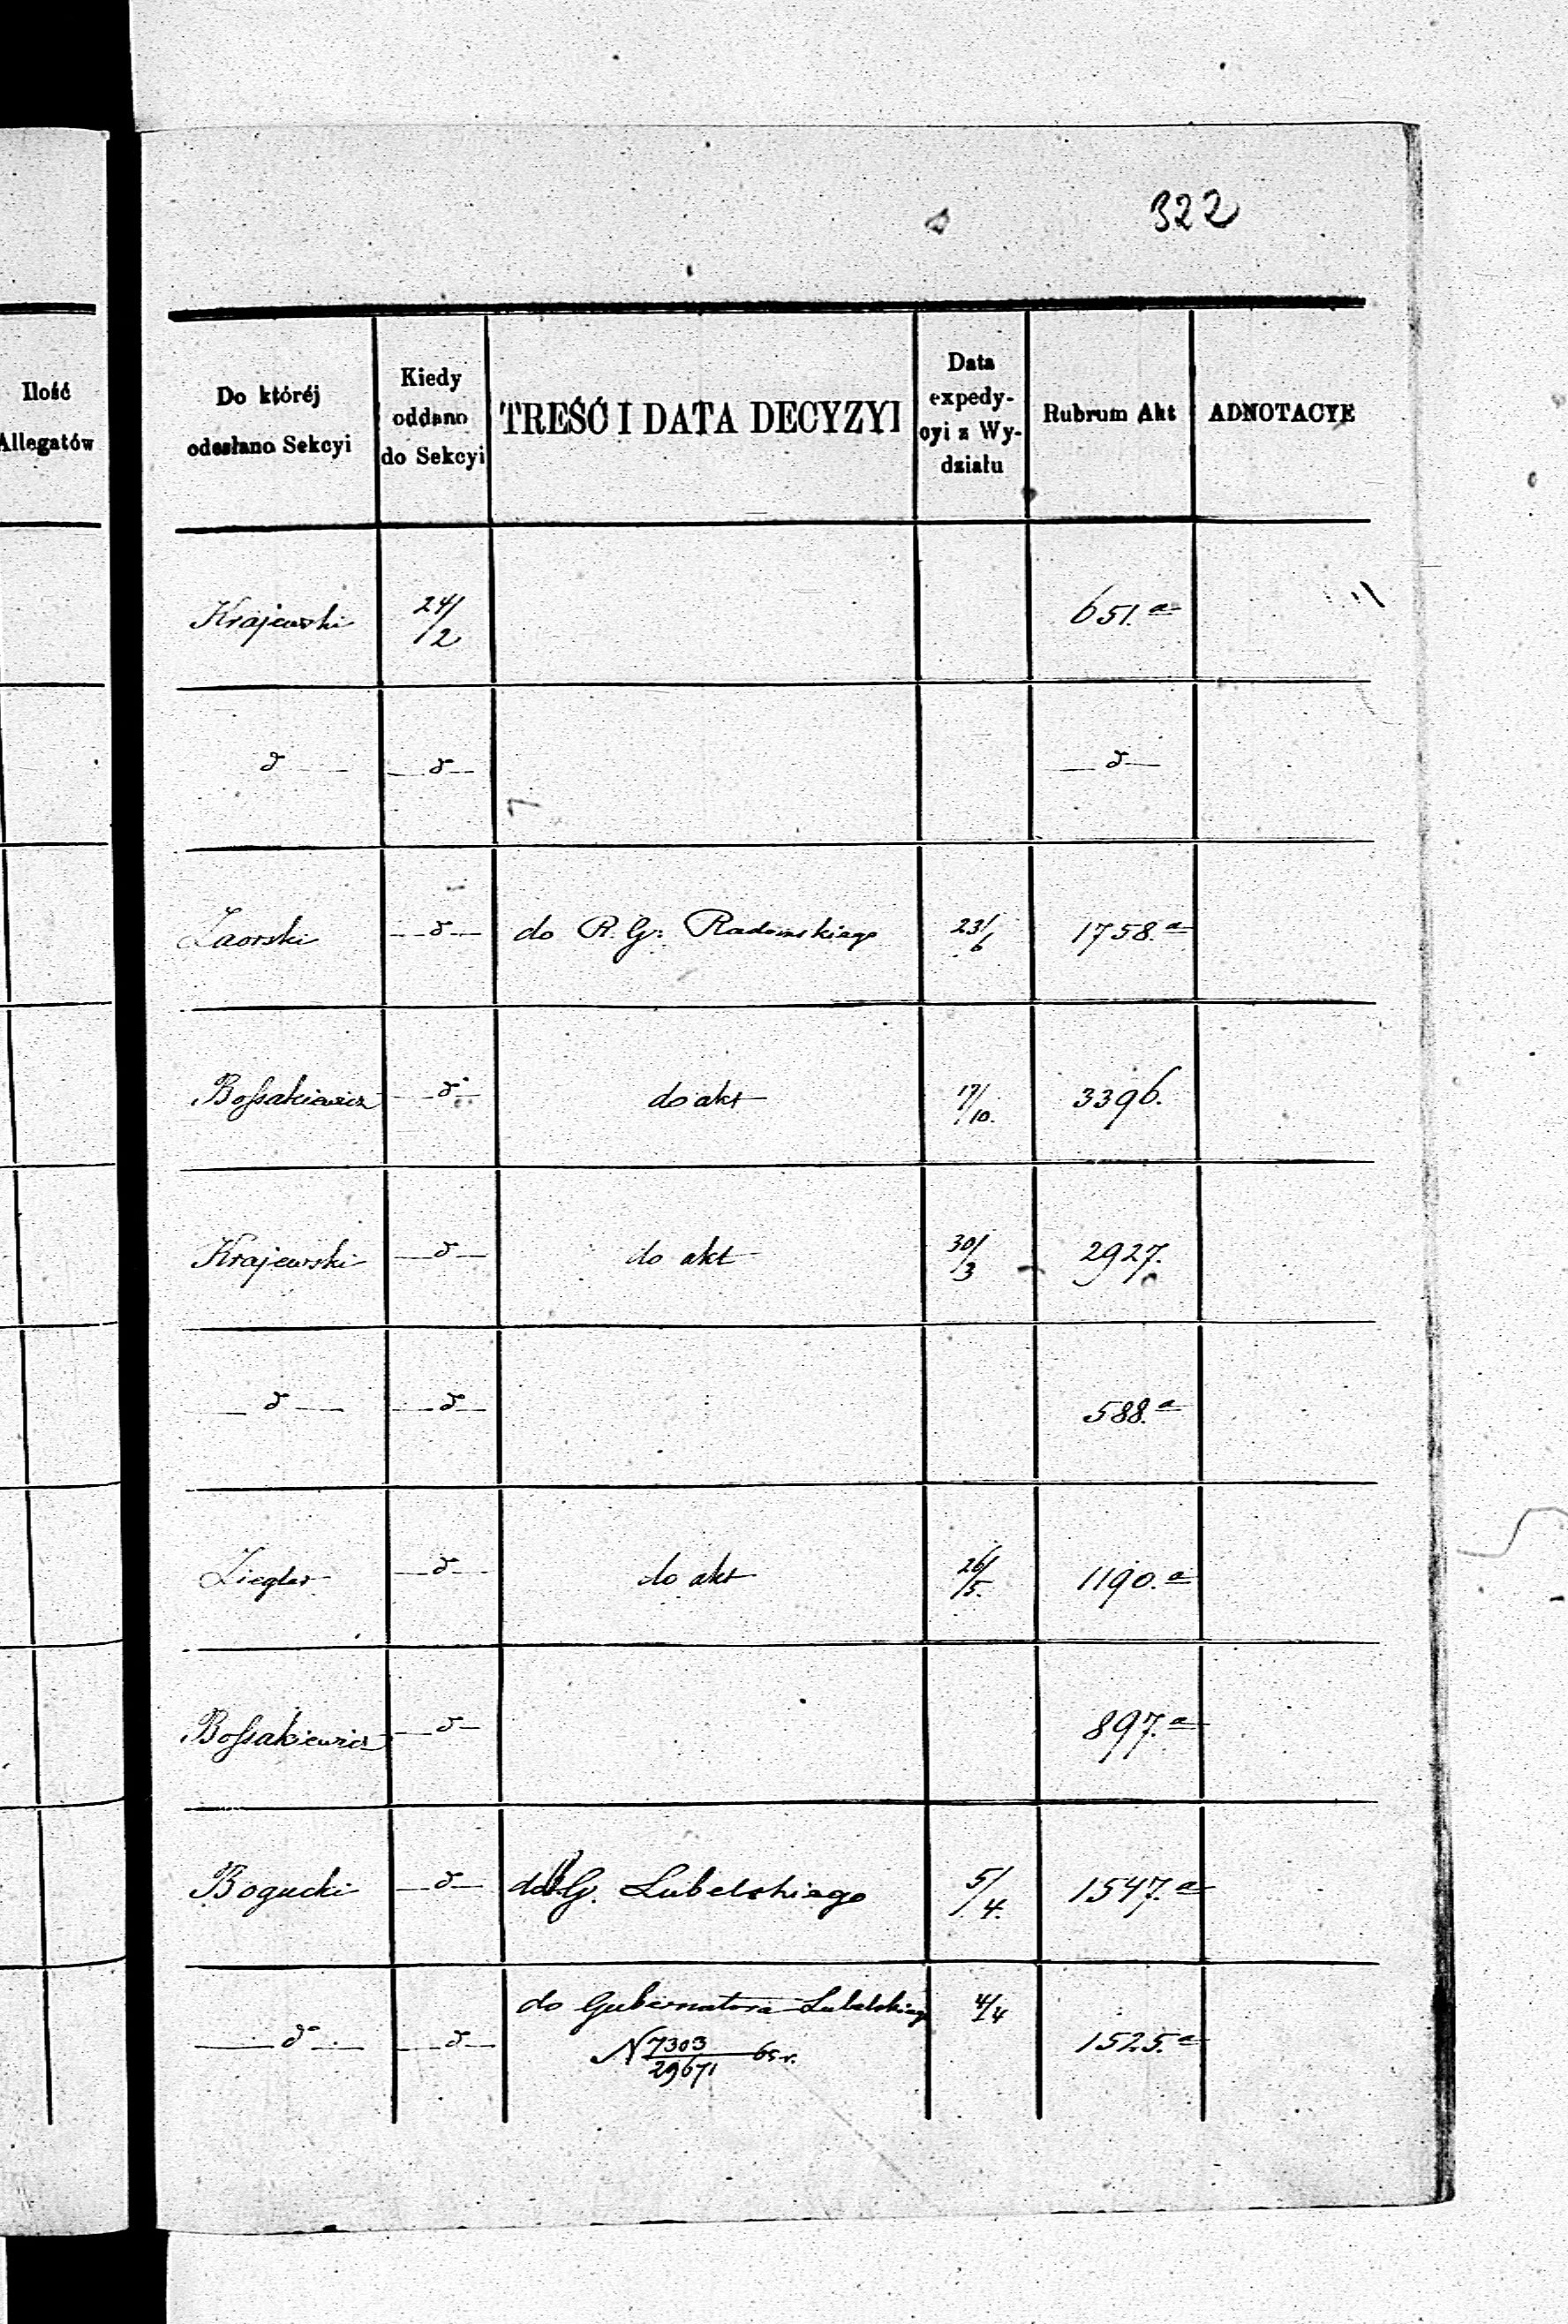 322
Ilość
Allegatów
Do któréj
odesłano Sekcyi
Kiedy
oddano
do Sekcyi
TREŚĆ I DATA DECYZYI
Data
expedy-
cyi z Wy-
działu
Rubrum Akt
ADNOTACYE
Krajewski 24/2 651.a
d d d
Zaorski d do R. G. Radomskiego 23/6 1758.a
Bossakiewicz d do akt 17/10. 3396.
Krajewski d do akt 30/3 2927.
d d 588.a
Ziegler d do akt 26/5. 1190.a
Bossakiewicz d 897.a
Bogucki d do G. Lubelskiego 5/4. 1547.a
do Gubernatora Lubelskiego 4/4
d d N 7303/29671 65 r. 1525.a